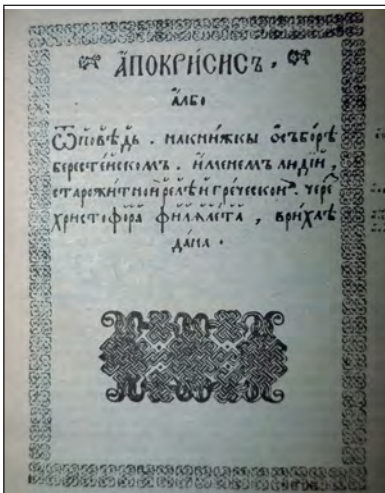 А҆ПОКРИ́СИСЪ .
а҆лбо
Ѿповѣдь . на книжкы ѡ съборѣ
берестейскомъ . и҆менемъ людій ,
старожитной релѣи греческои . чере
христофора филялета , врихлѣ
дана .